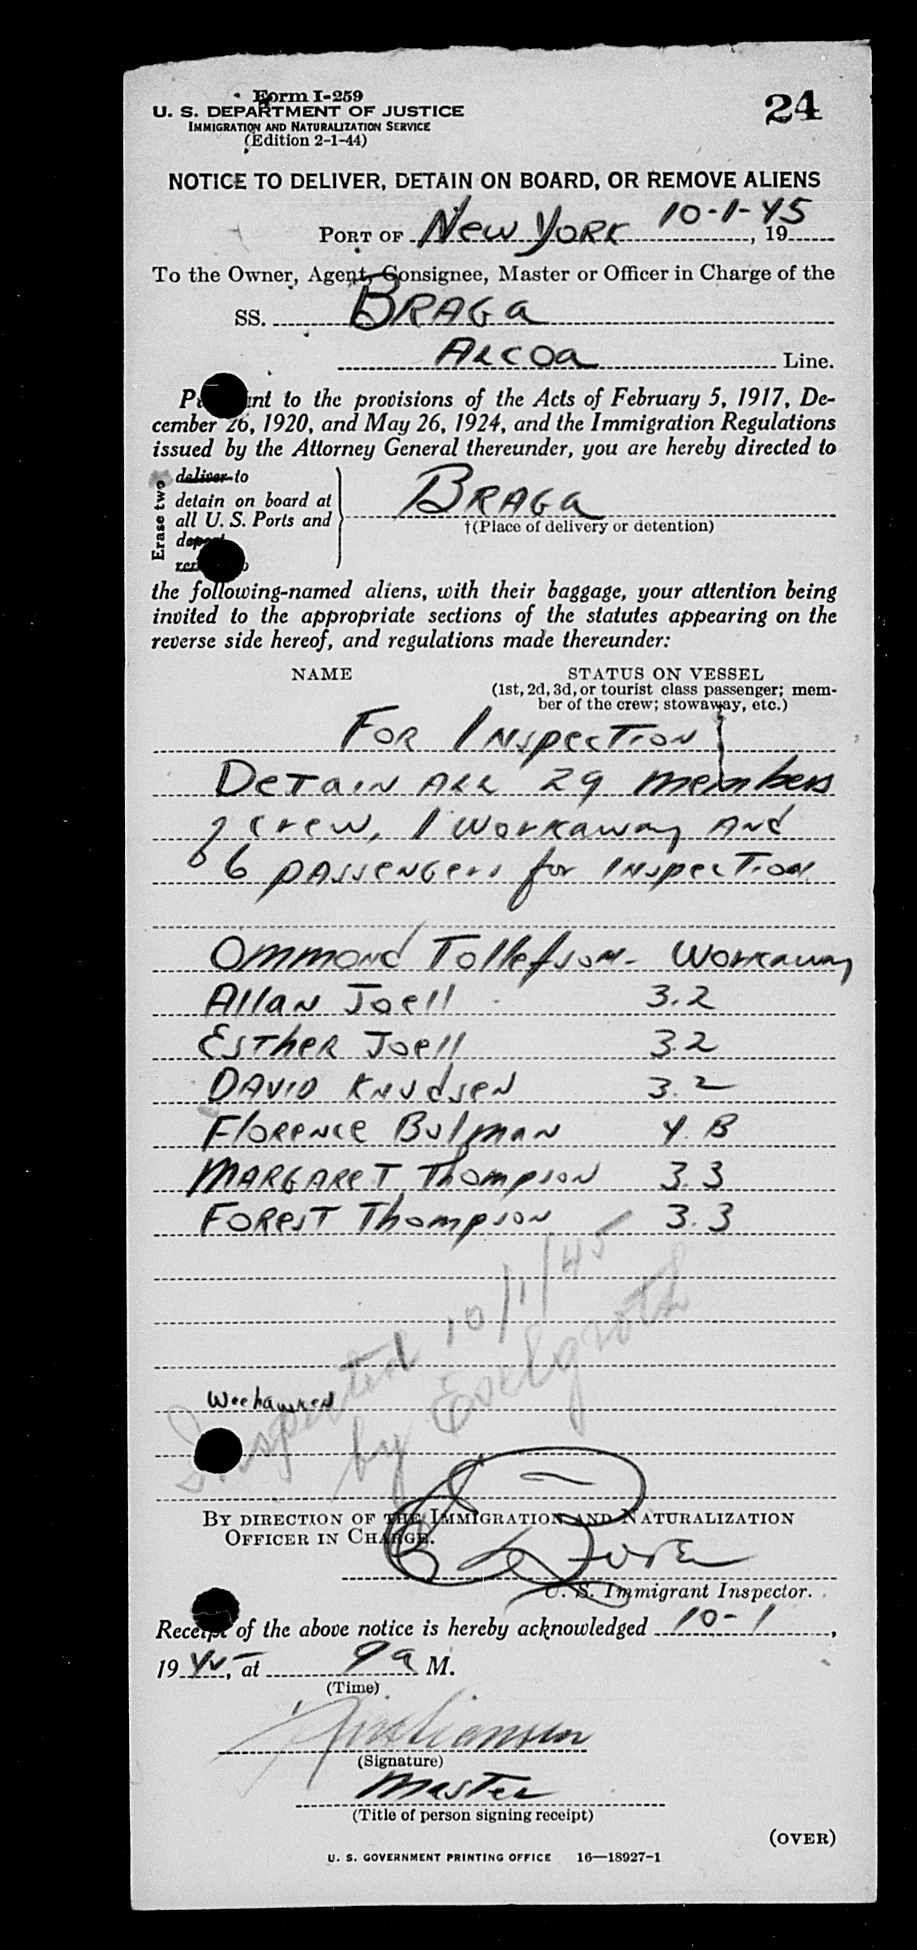 Form I-259
U. S. DEPARTMENT OF JUSTICE
IMMIGRATION AND NATURALIZATION SERVICE
(Edition 2-1-44)
24
NOTICE TO DELIVER, DETAIN ON BOARD, OR REMOVE ALIENS
PORT OF New York 10-1-45, 19
To the Owner, Agent, Consignee, Master or Officer in Charge of the
SS. BRAGA
ALCOA Line.
nt to the provisions of the Acts of February 5, 1917, De-
cember 26, 1920, and May 26, 1924, and the Immigration Regulations
issued by the Attorney General thereunder, you are hereby directed to
Erase two
deliver to
detain on board at
all U. S. Ports and
BRAGA
†(Place of delivery or detention)
the following-named aliens, with their baggage, your attention being
invited to the appropriate sections of the statutes appearing on the
reverse side hereof, and regulations made thereunder:
NAME STATUS ON VESSEL
(1st, 2d, 3d, or tourist class passenger; mem-
ber of the crew; stowaway, etc.)
FOR INSpecTION
DeTaiN ALL 29 members
of crew, 1 workaway ANd
6 pASSeNGers for INSpecTion
Ommond Tollefson - Workaway
AllaN Joell 3.2
ESTheR Joell 3.2
DAVID KNudseN 3.2
FloReNce BulmaN 4 B
MARGAReT ThompsoN 3.3
FOResT ThompsoN 3.3
Inspected 10/1/45
by Eselgroth
WeehawkeN
BY DIRECTION OF THE IMMIGRATION AND NATURALIZATION
OFFICER IN CHARGE.
U. S. Immigrant Inspector.
Receipt of the above notice is hereby acknowledged 10-1,
19 45, at 9a M.
(Time)
Kristiansen
(Signature)
Master
(Title of person signing receipt)
(OVER)
U. S. GOVERNMENT PRINTING OFFICE 16—18927-1